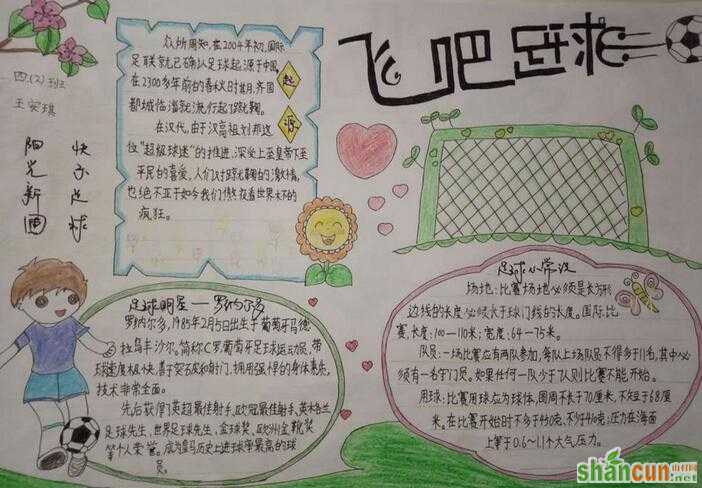 飞吧足球
四(2)班
王安琪
快乐足球
阳光新围
众所周知,在2004年初,国际
足联就已确认足球起源于中国。
在2300多年前的春秋时期,齐国
都城临淄就流行起了蹴鞠。
起
源
在汉代,由于汉高祖刘邦这
位“超级球迷”的推进,深受上至皇帝下至
平民的喜爱,人们对蹴鞠的激情,
也绝不亚于如今我们熬夜看世界杯的
疯狂。
足球明星——罗纳尔多
罗纳尔多,1985年2月5日出生于葡萄牙马德
拉岛丰沙尔。简称C罗,葡萄牙足球运动员,带
球速度极快,善于突破和射门,拥用强悍的身体素质,
技术非常全面。
先后获得英超最佳射手,欧冠最佳射手,英格兰
足球先生,世界足球先生,金球奖,欧洲金靴奖
等个人荣誉。成为皇马历史上进球率最高的球
员。
足球小常识
场地:比赛场地必须是长方形
边线的长度必须大于球门线的长度。国际比
赛,长度:100—110米;宽度:64—75米。
队员:一场比赛应有两队参加,每队上场队员不得多于11名,其中必
须有一名守门员。如果任何一队少于7人则比赛不能开始。
用球:比赛用球应为球体,圆周不长于70厘米,不短于68厘
米。在比赛开始时不多于450克,不少于410克;压力在海面
上等于0.6~1.1个大气压力。
shancun
山村网
.net